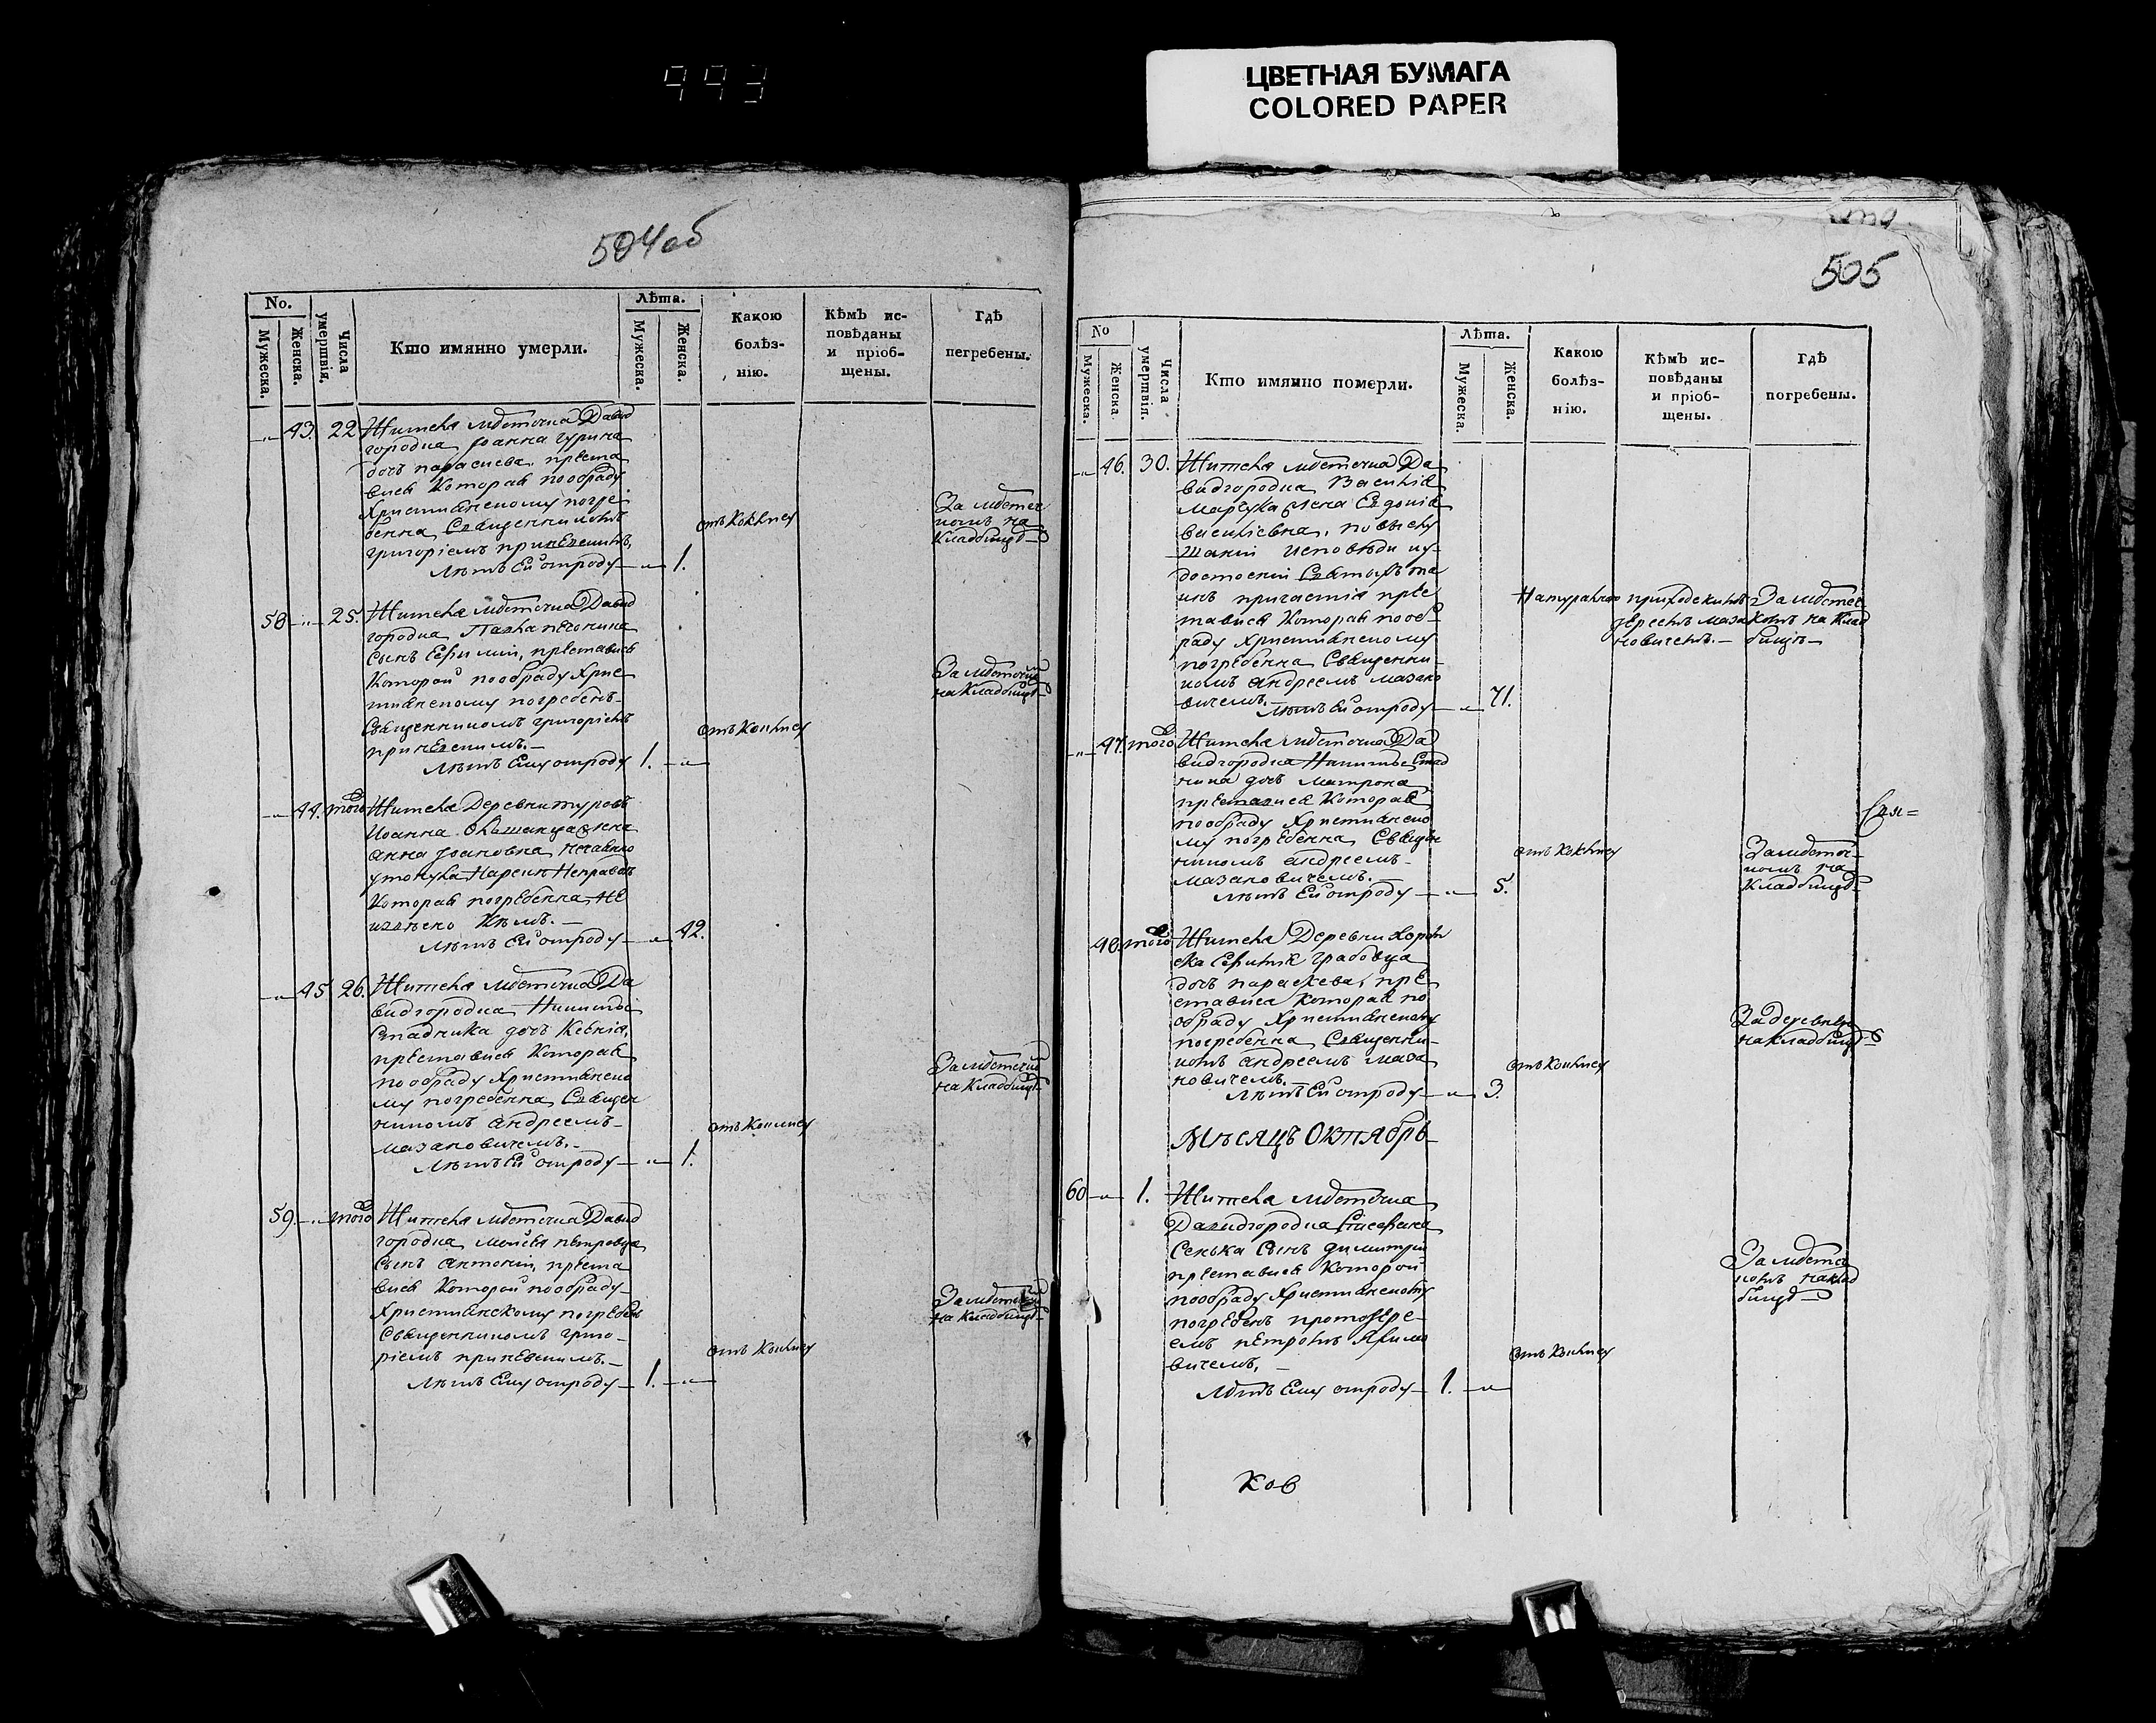 993
ЦВЕТНАЯ БУМАГА
COLORED PAPER
504об
No.
Мужеска.
Женска.
Числа умертвія.
Кто имянно умерли.
Лѣта.
Мужеска.
Женска.
Какою болѣз-
нію.
Кѣмъ ис-
повѣданы
и пріоб-
щены.
Гдѣ
пегребены.
43. 22 Жителя мѣстечка Давид
городка Іоанна Гурина
дочь Параскева, преста
вися которая по обряду
Христианскому погре
бенна Священникомъ
Григоріемъ
Лѣтъ Ей отроду 1.
отъ Коклюсу
За мѣстеч
комъ на
Кладбищѣ
58 25. Жителя мѣстечка Давид
городка Павла
сынъ Ефимій, преставися
Которой по обряду Хрис
тианскому погребенъ
Священникомъ Григоріемъ
Лѣтъ Ему отроду 1.
отъ Коклюсу
За мѣстечком
на Кладбищѣ
44. того Жителя Деревни Туровъ
Иоанна Ольшанца жена
Анна Іоановна нечаянно
утонула
Которая погребенна, не
извѣсно Кѣмъ.
Лѣтъ Ей отроду 42.
45 26. Жителя мѣстечка Да
видгородка Никиты
Стадника дочь Ксенія,
преставися Которая
по обряду Христианско
му погребенна Священ
никомъ Андреемъ
Мазановичемъ.
Лѣтъ Ей отроду 1.
отъ Коклюсу
За мѣстечком
на Кладбищѣ
59. того Жителя мѣстечка Давид
городка Моисея Петровца
сынъ Антоній, преста
вися Которой по обряду
Христианскому погребен
Священникомъ Григо-
ріемъ
Лѣтъ Ему отроду 1.
отъ Коклюсу
За мѣстечком
на Кладбищѣ
505
No
Мужеска.
Женска.
Числа умертвія.
Кто имянно померли.
Лѣта.
Мужеска.
Женска.
Какою
болѣз-
нію.
Кѣмъ ис-
повѣданы
и пріоб-
щены.
Гдѣ
погребены.
46. 30. Жителя мѣстечка Да
видгородка Василія
жена Евдокія
Василіевна, по выслу
шаніи Исповѣди и у-
достоеніи Святыхъ та
инъ причастія прес
тавися Которая по об-
ряду Христианскому
погребенна Священни-
комъ Андреемъ Мазано
вичемъ.
Лѣтъ Ей отроду 71.
Натурално
приходскимъ
Іереемъ Маза
новичемъ.
За мѣстеч
комъ на Клад
бищѣ
47. того Жителя мѣстечка Да
видгородка Никиты Стад
ника дочь Матрона
преставися Которая
по обряду Христианско
му погребенна Священ
никомъ Андреемъ
Мазановичемъ.
Лѣтъ Ей отроду 5.
отъ Коклюсу
За мѣстеч-
комъ на
Кладбищѣ
48. того Жителя Деревни Хором
ска Грабовца
дочь Параскева, пре
ставися Которая по
обряду Христианскому
погребенна Священни-
комъ Андреемъ Маза
новичемъ.
Лѣтъ Ей отроду 3.
отъ Коклюсу
За деревнею
на кладбищѣ
Мѣсяцъ Октябрь
60 1. Жителя мѣстечка
Давидгородка
Сенька Сынъ Димитрій
преставися Которой
по обряду Христианскому
погребенъ протоіере-
емъ Петромъ Якимо
вичемъ.
Лѣтъ Ему отроду 1.
отъ Коклюсу
За мѣстеч
комъ на клад
бищѣ
Ков